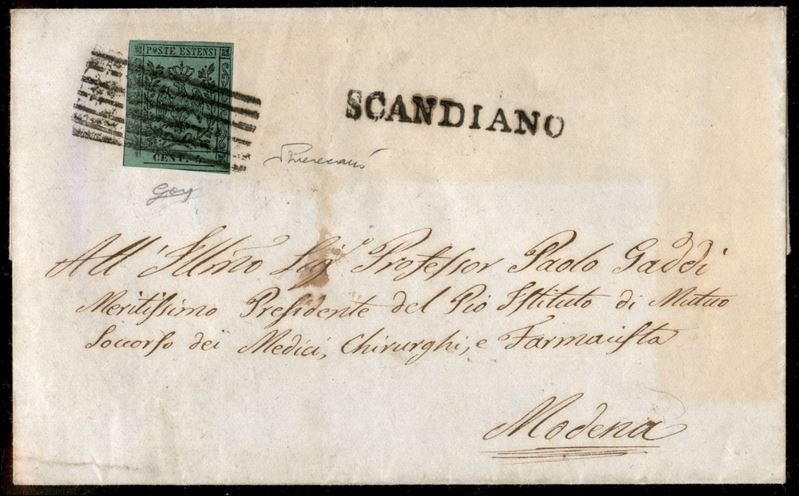 POSTE ESTENSI
CENT. 5
SCANDIANO
Goy
All' Illmo Sigr Professor Paolo Gaddi
Meritissimo Presidente del Pio Istituto di Mutuo
Soccorso dei Medici, Chirurghi, e Farmacista
Modena